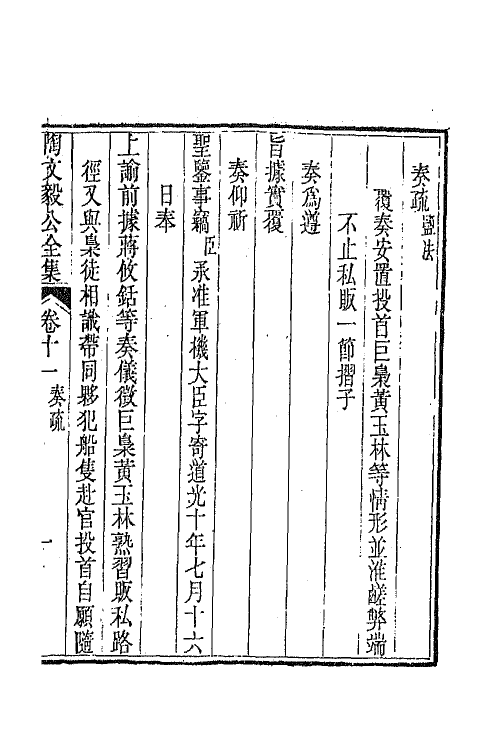 奏疏 鹽法
覆奏安置投首巨梟黃玉林等情形並淮鹺弊端
不止私販一節摺子
奏為遵
旨據實覆
奏仰祈
聖鑒事竊臣承准軍機大臣字寄道光十年七月十六
日奉
上諭前據蔣攸銛等奏儀徵巨梟黃玉林熟習販私路
徑又與梟徒相識帶同夥犯船隻赴官投首自願隨
陶文毅公全集 卷十一 奏疏 一